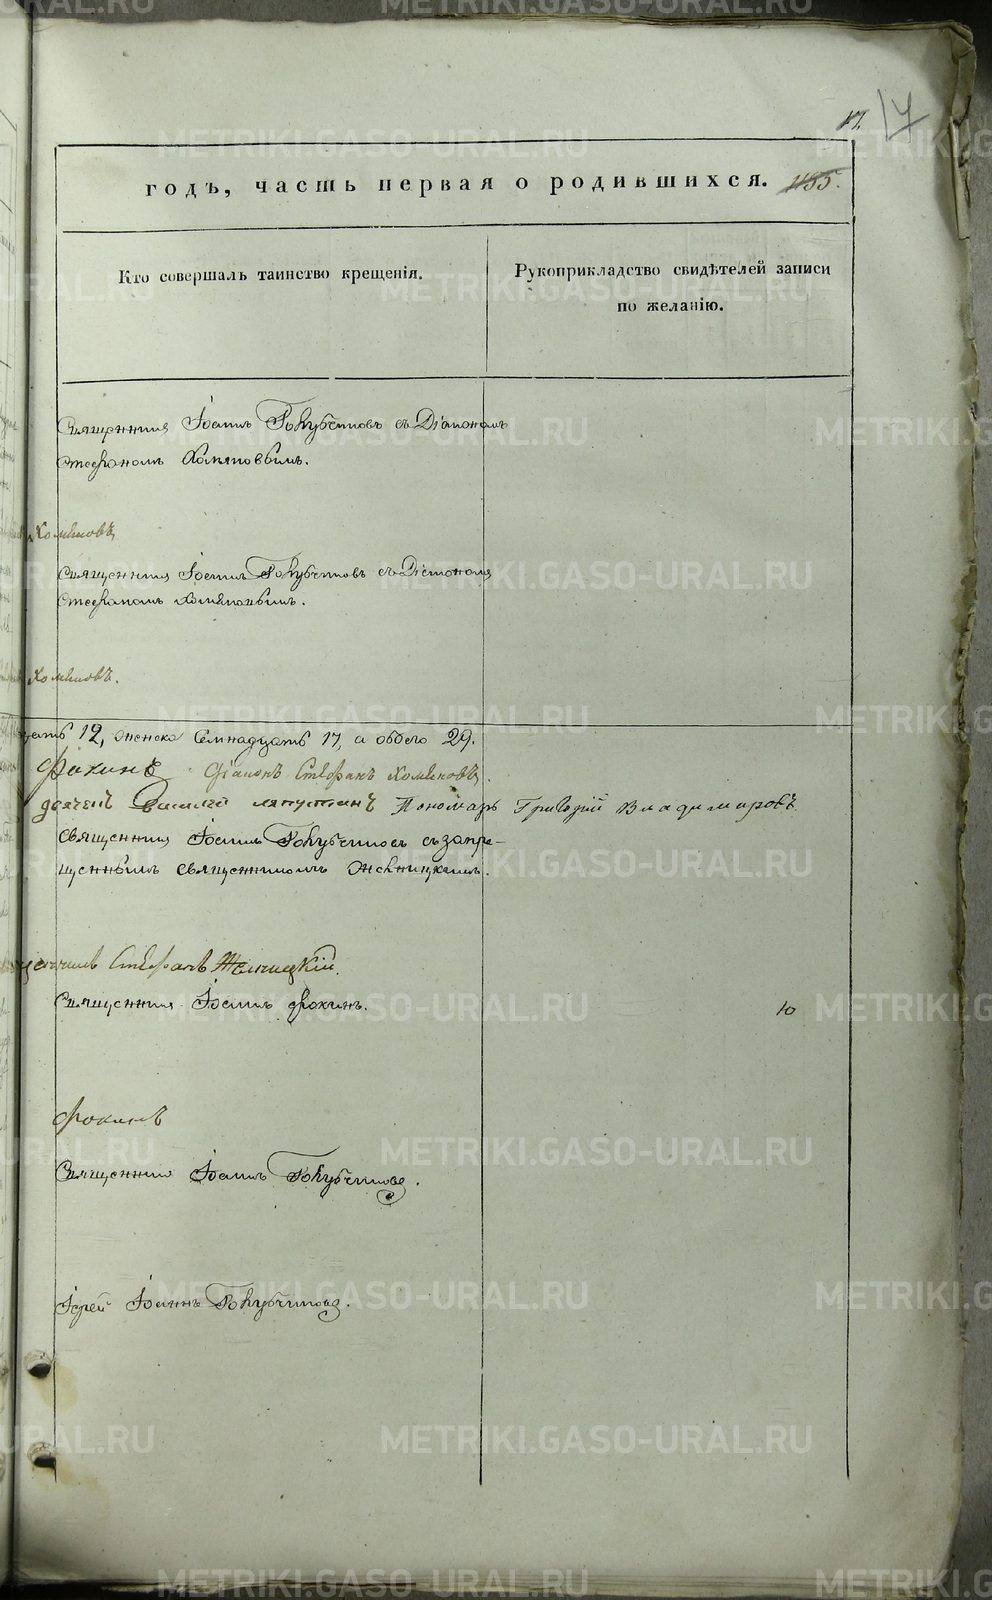 METRIKI.GASO-URAL.RU
17. 17
годъ, часть первая о родившихся. 1155.
Кто совершалъ таинство крещенія.
Рукоприкладство свидѣтелей записи
по желанію.
Священникъ Іоаннъ Голубчиковъ съ Діакономъ
Стефаномъ Хомяковымъ.
Хомяковъ
Священникъ Іоаннъ Голубчиковъ съ Діакономъ
Стефаномъ Хомяковымъ.
Хомяковъ.
12, женска Семнадцать 17, а обоего 29.
Фокинъ Діаконъ Стефанъ Хомяковъ.
дьячекъ Василей Ляпустинъ Пономарь Григорій Владимировъ
Священникъ Іоаннъ Голубчиковъ съ запре-
щеннымъ священникомъ
Стефанъ
Священникъ Іоаннъ Фокинъ.
10
Фокинъ
Священникъ Іоаннъ Голубчиковъ.
Іерей Іоаннъ Голубчиковъ.